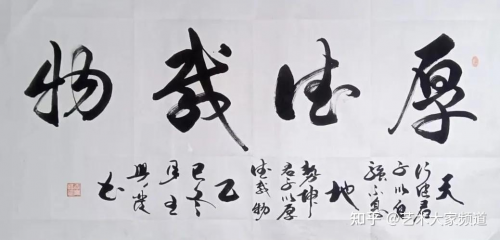 厚德載物
天
行健君
子以自
强不息
地
勢坤
君子以厚
德載物
乙
巳冬
书
知乎 @艺术大家频道